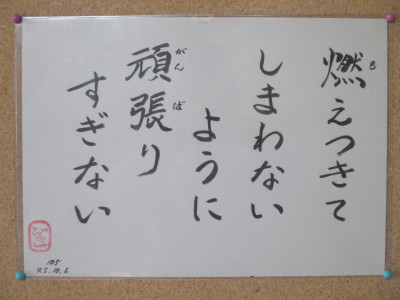 燃えつきて
しまわない
ように
頑張り
すぎない
105
25.10.6